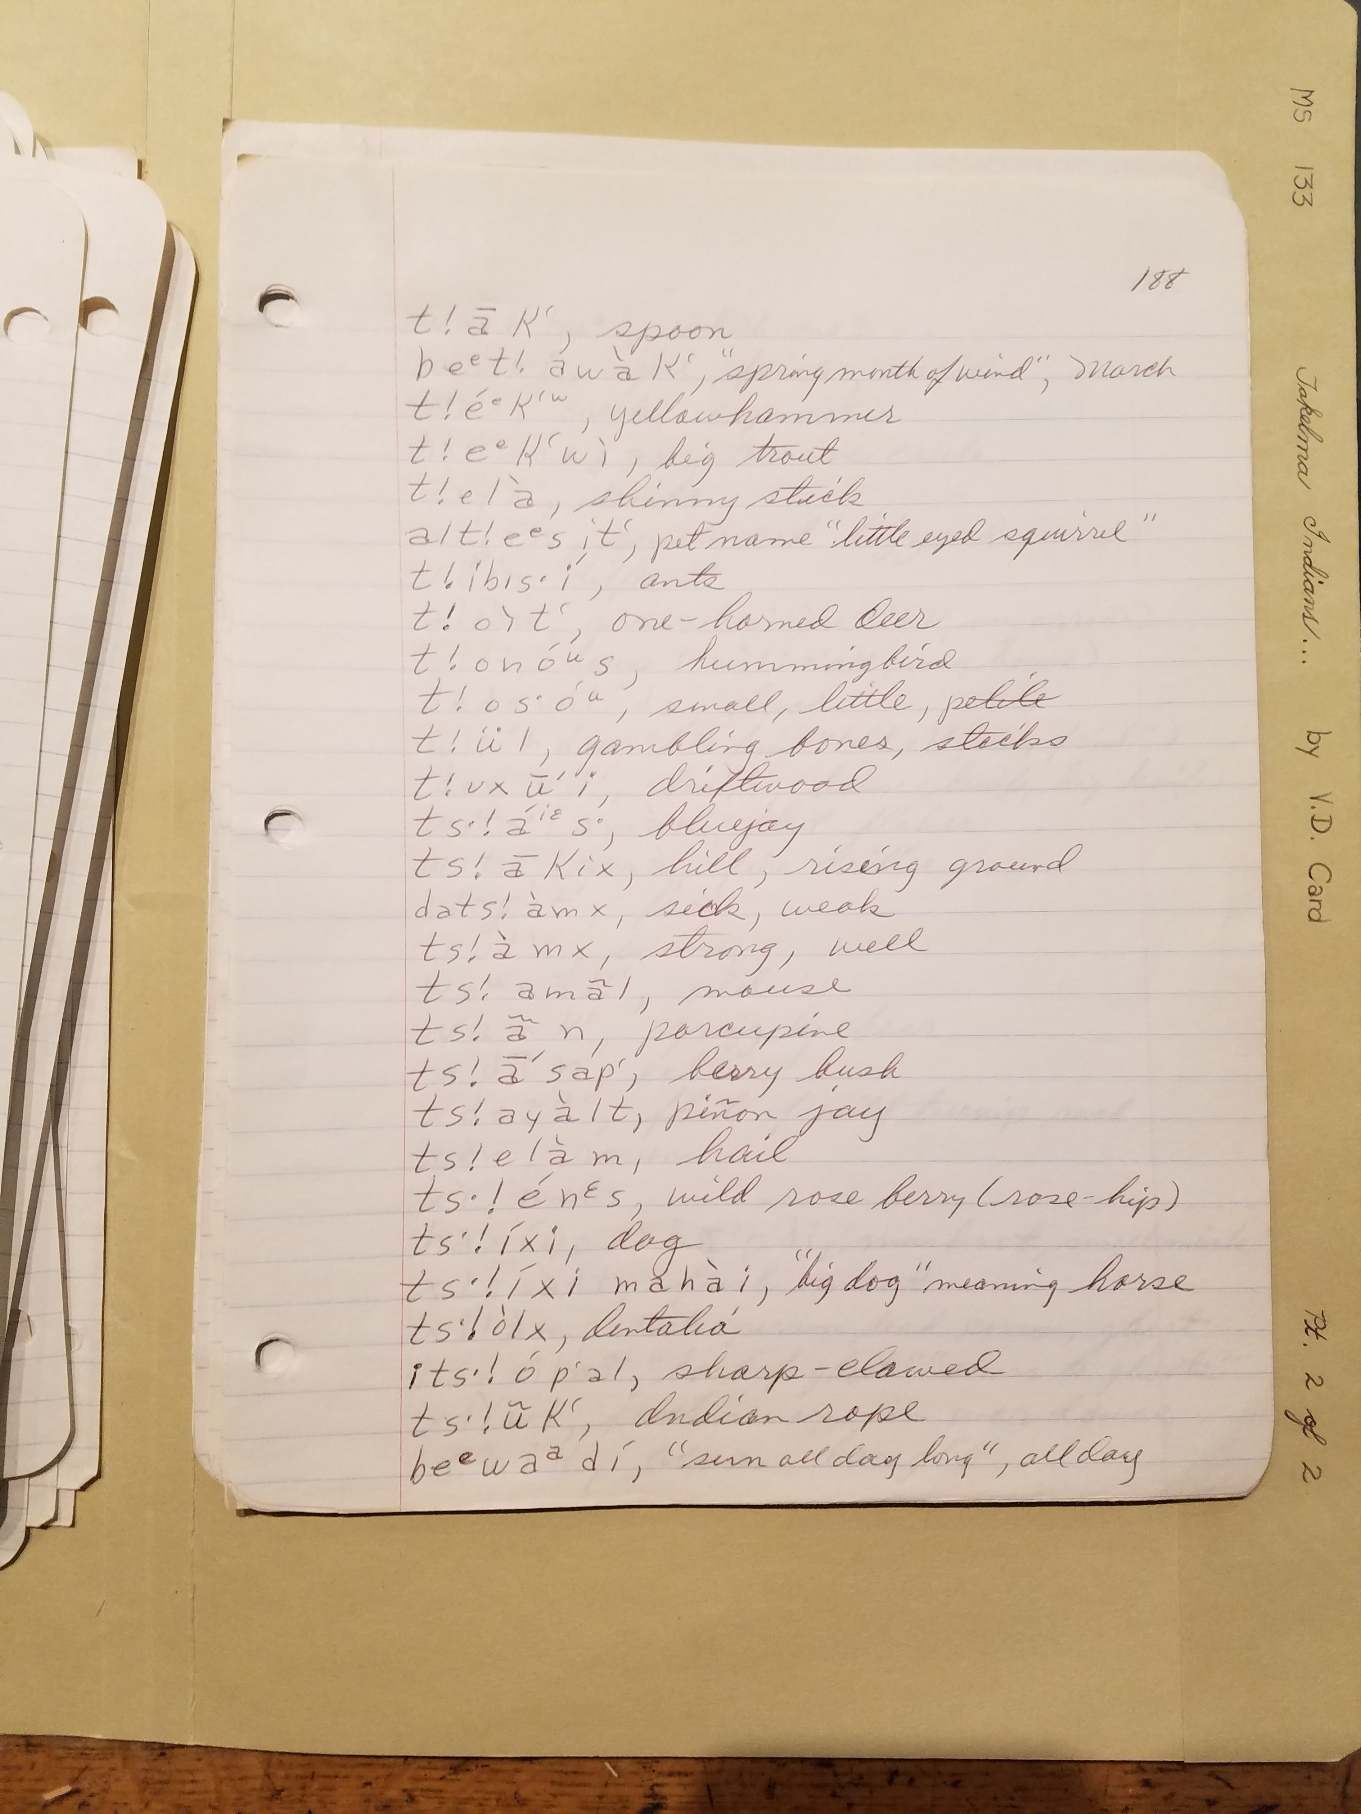 188
t!ā k', spoon
beᵉt! awàk', "spring month of wind", March
t!éᵉk'ʷ, yellowhammer
t!eᵉk'wì, big trout
t!elà, shinny stick
alt!eᵉsit', pet name "little eyed squirrel"
t!ibis·í, ants
t!oìt', one-horned deer
t!onóᵘs, hummingbird
t!os·óᵘ, small, little, petite
t!ül, gambling bones, sticks
t!uxū́i, driftwood
ts·!áⁱᵋs·, bluejay
ts!ākix, hill, rising ground
dats!àmx, sick, weak
ts!àmx, strong, well
ts!amãl, mouse
ts!ãn, porcupine
ts!ā́sap', berry bush
ts!ayàlt, piñon jay
ts!elàm, hail
ts·!énᵋs, wild rose berry (rose-hip)
ts·!íxi, dog
ts·!íxi mahài, "big dog" meaning horse
ts·!òlx, dentalia
its·!óp'al, sharp-clawed
ts·!ũk', Indian rope
beᵉwaᵃdí, "sun all day long", all day
MS 133 Takelma Indians... by V.D. Card Pt. 2 of 2